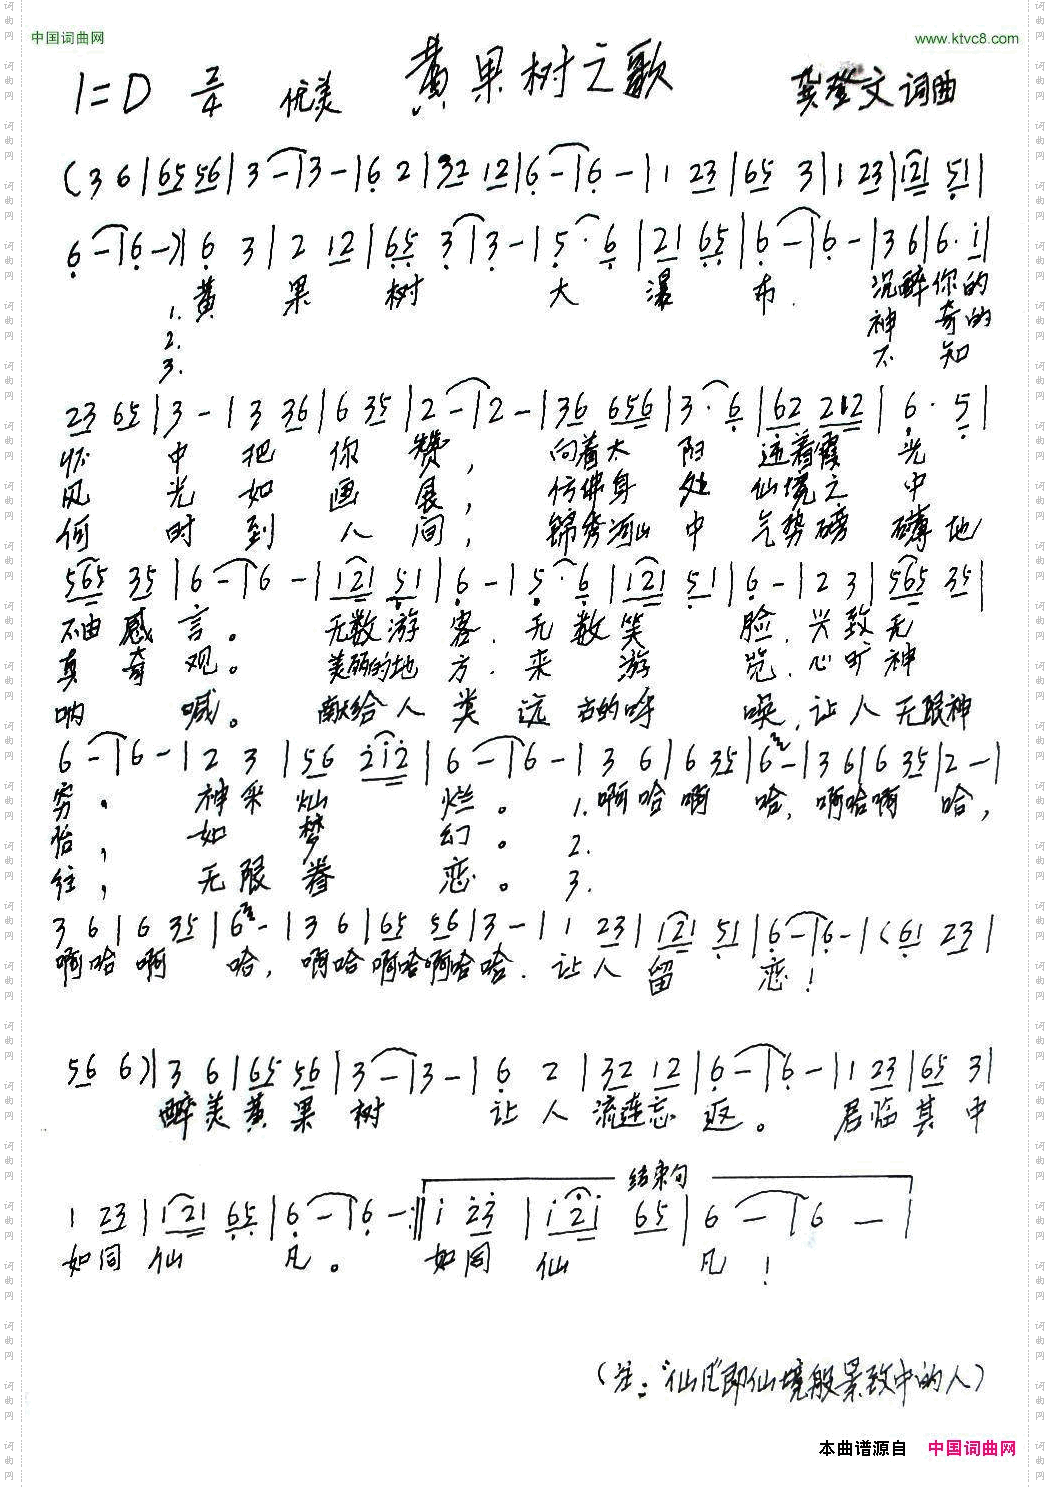 中国词曲网
www.ktvc8.com
黄果树之歌
1=D 2/4 优美
龚登文词曲
(3 6|65 56|3 -|3 -|6 2|32 12|6 -|6 -|1 23|65 3|1 23|121 51|
6 -|6 -)|6 3|2 12|65 3|3 -|5· 6|21 65|6 -|6 -|3 6|6· i|
1. 黄 果 树 大 瀑 布. 沉醉你的
2. 神 奇的
3. 不 知
23 65|3 -|3 36|6 35|2 -|2 -|36 656|3· 6|62 212|6· 5|
怀 中 把 你 赞, 向着太 阳 迎着霞 光
风 光 如 画 展, 仿佛身 处 仙境之 中
何 时 到 人 间, 锦秀河山 中 气势磅 礴地
565 35|6 -|6 -|121 51|6 -|5· 6|121 51|6 -|2 3|565 35|
不由 感 言。 无数游 客. 无 数笑 脸. 兴致无
真 奇 观。 美丽的地 方. 来 游 览. 心旷神
呐 喊。 献给人 类 远 古的呼 唤. 让人无限神
6 -|6 -|2 3|56 2i2|6 -|6 -|3 6|6 35|6 -|3 6|6 35|2 -|
穷. 神采灿 烂。 1. 啊哈啊 哈, 啊哈啊 哈,
怡, 如 梦 幻。 2.
往, 无限眷 恋。 3.
3 6|6 35|6 -|3 6|65 56|3 -|1 23|121 51|6 -|6 -|(61 23|
啊哈啊 哈, 啊哈啊哈啊哈哈. 让人 留 恋!
56 6)|3 6|65 56|3 -|3 -|6 2|32 12|6 -|6 -|1 23|65 3|
醉美黄果 树 让 人 流连忘 返。 君临其 中
结束句
1 23|121 65|6 -|6 -:‖i 23|i2i 65|6 -|6 -|
如同 仙 凡。 如同 仙 凡!
(注:“仙凡”即仙境般景致中的人)
本曲谱源自 中国词曲网